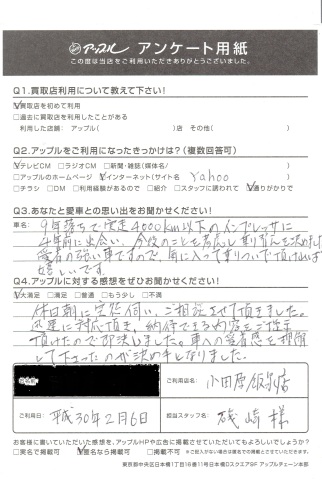 アップル アンケート用紙
この度は当店をご利用いただきありがとうございました。
Q1.買取店利用について教えて下さい!
☑買取店を初めて利用
□過去に買取店を利用したことがある
利用した店舗: アップル( )店 その他( )
Q2.アップルをご利用になったきっかけは?(複数回答可)
☑テレビCM □ラジオCM □新聞・雑誌(媒体名/ )
□アップルのホームページ ☑インターネット(サイト名 Yahoo )
□チラシ □DM □利用経験があるので □紹介 □スタッフに誘われて ☑通りがかりで
Q3.あなたと愛車との思い出をお聞かせください!
車名: 9年落ちで走行4000km以下のインプレッサに
4年前に出会い、
愛着の強い車ですので、気に入って
嬉しいです。
Q4.アップルに対する感想をぜひお聞かせください!
☑大満足 □満足 □普通 □もう少し □不満
休日朝に突然伺い、ご相談させて頂きました。
迅速に対応頂き、納得できる内容をご提示
頂けたので即決しました。車への愛着感を理解
して下さったのが決め手となりました。
ご利用店名: 小田原飯泉店
ご利用日: 平成30年2月6日
担当スタッフ名: 磯崎様
お客様に書いていただいた感想を、アップルHPや広告に掲載させていただいてもよろしいでしょうか?
□実名で掲載可 ☑匿名なら掲載可 □掲載不可
東京都中央区日本橋1丁目16番11号日本橋Dスクエア9F アップルチェーン本部